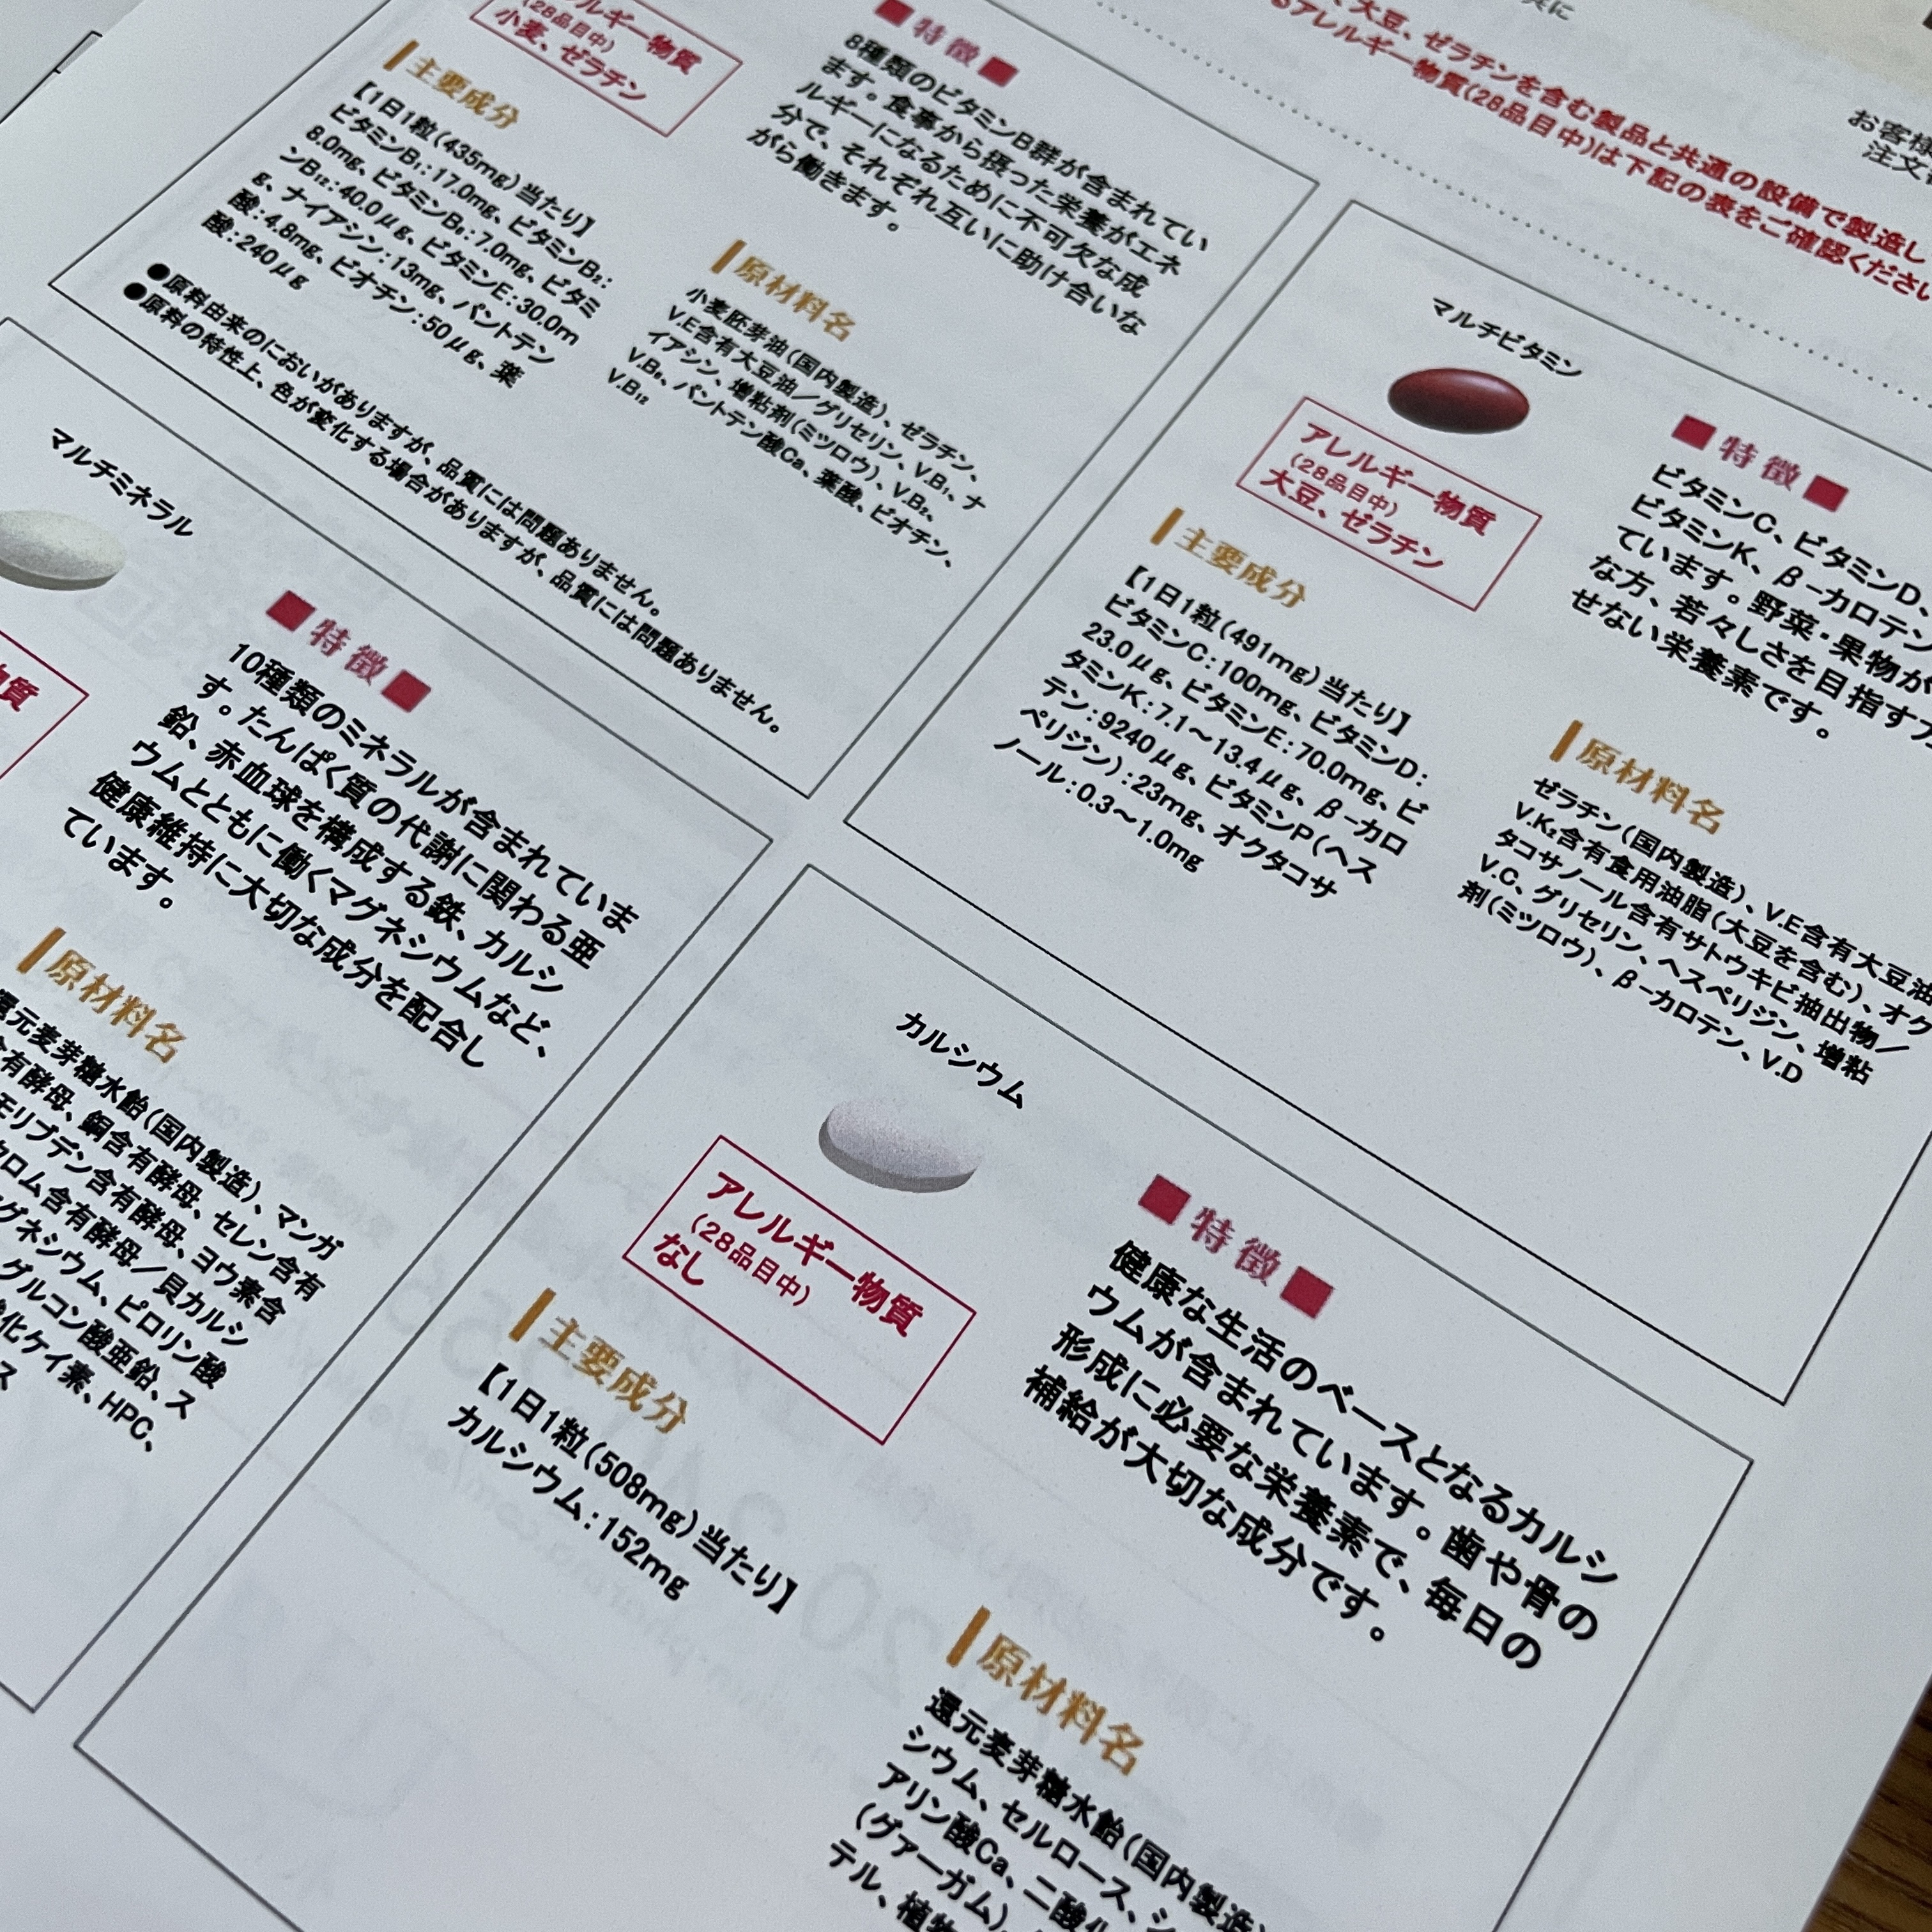 実に
、大豆、ゼラチンを含む製品と共通の設備で製造し
るアレルギー物質(28品目中)は下記の表をご確認ください
お客様
注文
ルギー物質
(28品目中)
小麦、ゼラチン
主要成分
【1日1粒(435mg)当たり】
ビタミンB₁:17.0mg、ビタミンB₂:
8.0mg、ビタミンB₆:7.0mg、ビタミ
ンB₁₂:40.0μg、ビタミンE:30.0m
g、ナイアシン:13mg、パントテン
酸:4.8mg、ビオチン:50μg、葉
酸:240μg
■特徴■
8種類のビタミンB群が含まれてい
ます。食事から摂った栄養がエネ
ルギーになるために不可欠な成
分で、それぞれ互いに助け合いな
がら働きます。
原材料名
小麦胚芽油(国内製造)、ゼラチン、
V.E含有大豆油／グリセリン、V.B₁、ナ
イアシン、増粘剤(ミツロウ)、V.B₂、
V.B₆、パントテン酸Ca、葉酸、ビオチン、
V.B₁₂
●原料由来のにおいがありますが、品質には問題ありません。
●原料の特性上、色が変化する場合がありますが、品質には問題ありません。
マルチビタミン
アレルギー物質
(28品目中)
大豆、ゼラチン
主要成分
【1日1粒(491mg)当たり】
ビタミンC:100mg、ビタミンD:
23.0μg、ビタミンE:70.0mg、ビ
タミンK:7.1～13.4μg、β-カロ
テン:9240μg、ビタミンP(ヘス
ペリジン):23mg、オクタコサ
ノール:0.3～1.0mg
■特徴■
ビタミンC、ビタミンD、
ビタミンK、β-カロテン
ています。野菜・果物が
な方、若々しさを目指す方
せない栄養素です。
原材料名
ゼラチン(国内製造)、V.E含有大豆油
V.K₂含有食用油脂(大豆を含む)、オク
タコサノール含有サトウキビ抽出物／
V.C、グリセリン、ヘスペリジン、増粘
剤(ミツロウ)、β-カロテン、V.D
マルチミネラル
物質
■特徴■
10種類のミネラルが含まれていま
す。たんぱく質の代謝に関わる亜
鉛、赤血球を構成する鉄、カルシ
ウムとともに働くマグネシウムなど、
健康維持に大切な成分を配合し
ています。
原材料名
還元麦芽糖水飴(国内製造)、マンガ
含有酵母、銅含有酵母、セレン含有
モリブデン含有酵母、ヨウ素含
クロム含有酵母／貝カルシ
グネシウム、ピロリン酸
グルコン酸亜鉛、ス
化ケイ素、HPC、
ス
カルシウム
アレルギー物質
(28品目中)
なし
主要成分
【1日1粒(508mg)当たり】
カルシウム:152mg
■特徴■
健康な生活のベースとなるカルシ
ウムが含まれています。歯や骨の
形成に必要な栄養素で、毎日の
補給が大切な成分です。
原材料名
還元麦芽糖水飴(国内製造)
シウム、セルロース、シ
アリン酸Ca、二酸化
(グァーガム)
テル、植物